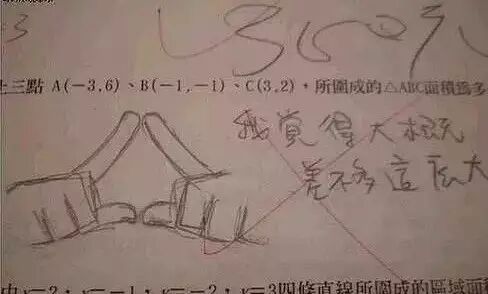 上三點 A(-3,6)、B(-1,-1)、C(3,2)，所圍成的△ABC面積為多
我覺得大概
差不多這麼大
由 y=2，y=-1，x=-2，x=3四條直線所圍成的區域面積